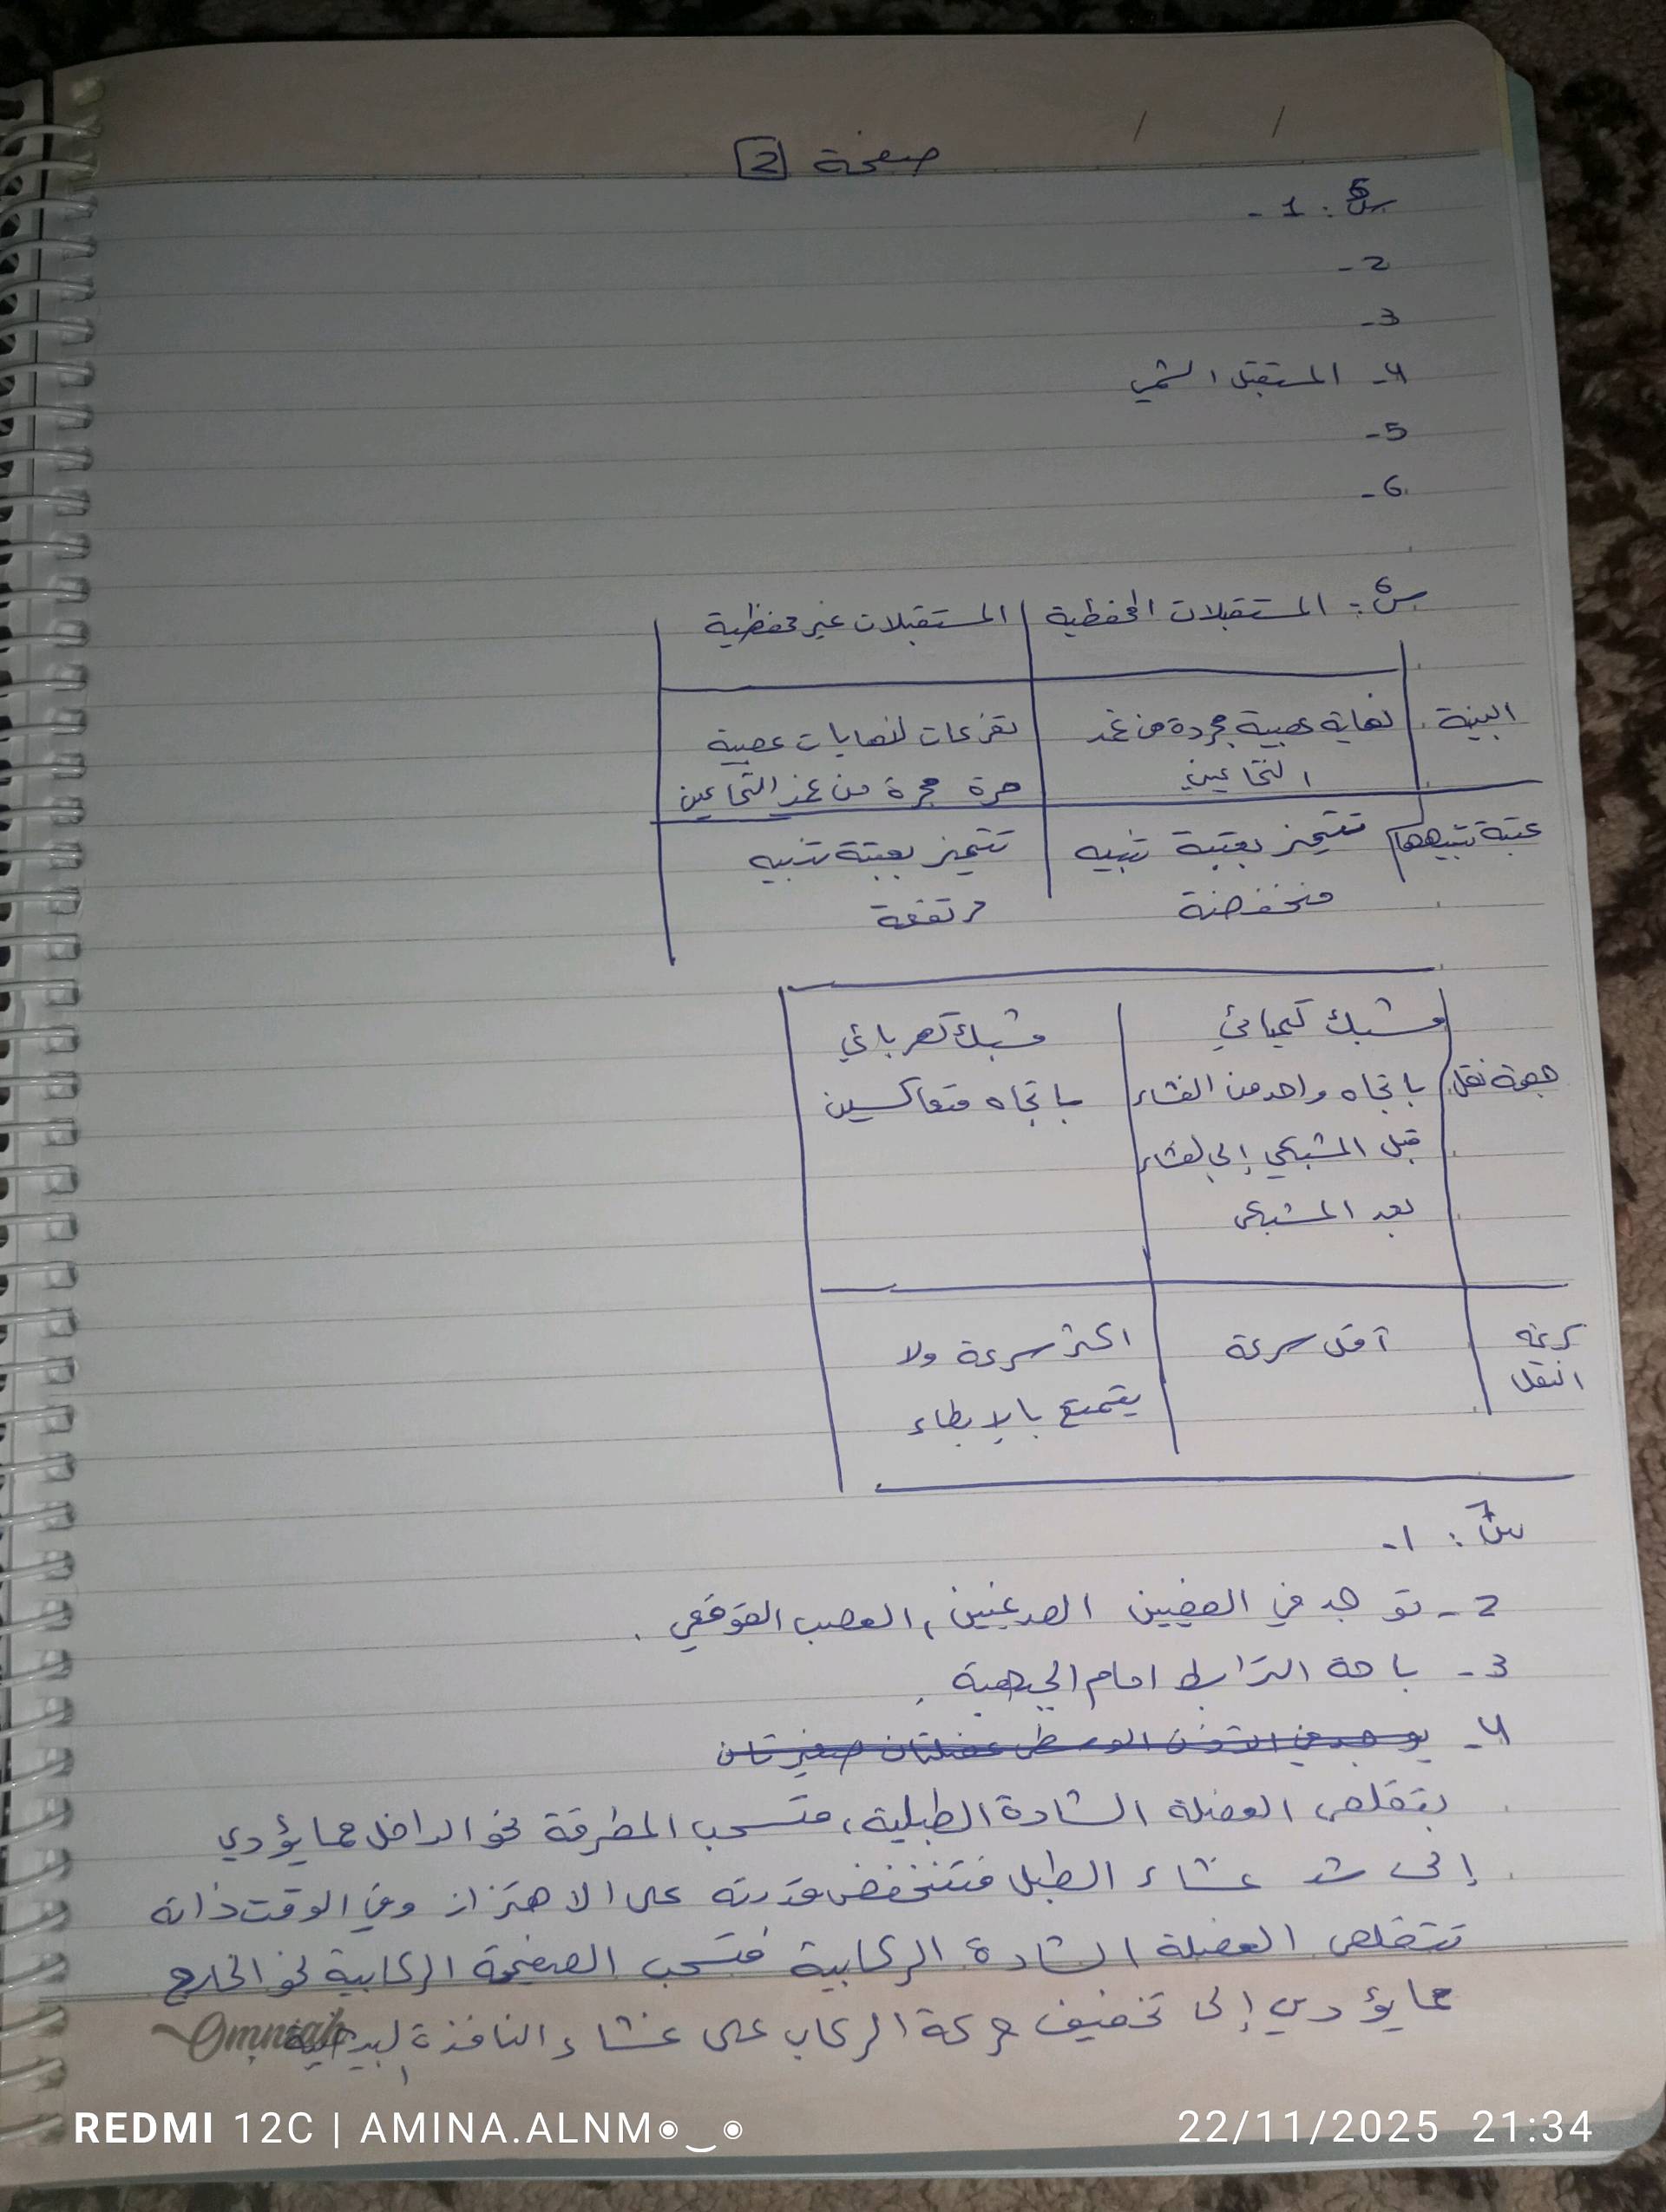 صفحة 2
س5 : 1 -
2 -
3 -
4 - المستقبل الشمي
5 -
6 -
س6 : المستقبلات المحفظية | المستقبلات غير محفظية
البنية | نهاية عصبية مجردة من غمد | تفرعات لنهايات عصبية
النخاعين | حرة مجرة من غمد النخاعين
عتبة تنبيهها | تتميز بعتبة تنبيه | تتميز بعتبة تنبيه
منخفضة | مرتفعة
مشبك كيميائي | مشبك كهربائي
جهة نقل | باتجاه واحد من الغشاء | باتجاه متعاكسين
قبل المشبكي إلى لغشاء
بعد المشبكي
سرعة | أقل سرعة | اكثر سرعة ولا
النقل | يتمتع بالإبطاء
س7 : 1 -
2 - توجد في الفصيين الصدغيين ، العصب القوقعي .
3 - باحة الترابط امام الجبهية .
4 - يوجد في الاذن الوسطى عضلتان صغيرتان
بتقلص العضلة الشادة الطبلية ، فتسحب المطرقة نحو الداخل مما يؤدي
إلى شد غشاء الطبل فتنخفض قدرته على الاهتزاز وفي الوقت ذاته
تتقلص العضلة الشادة الركابية فتسحب الصفيحة الركابية نحو الخارج
مما يؤدي إلى تخفيف حركة الركاب على غشاء النافذة البيضية
Omnia
REDMI 12C | AMINA.ALNM◉‿◉
22/11/2025 21:34